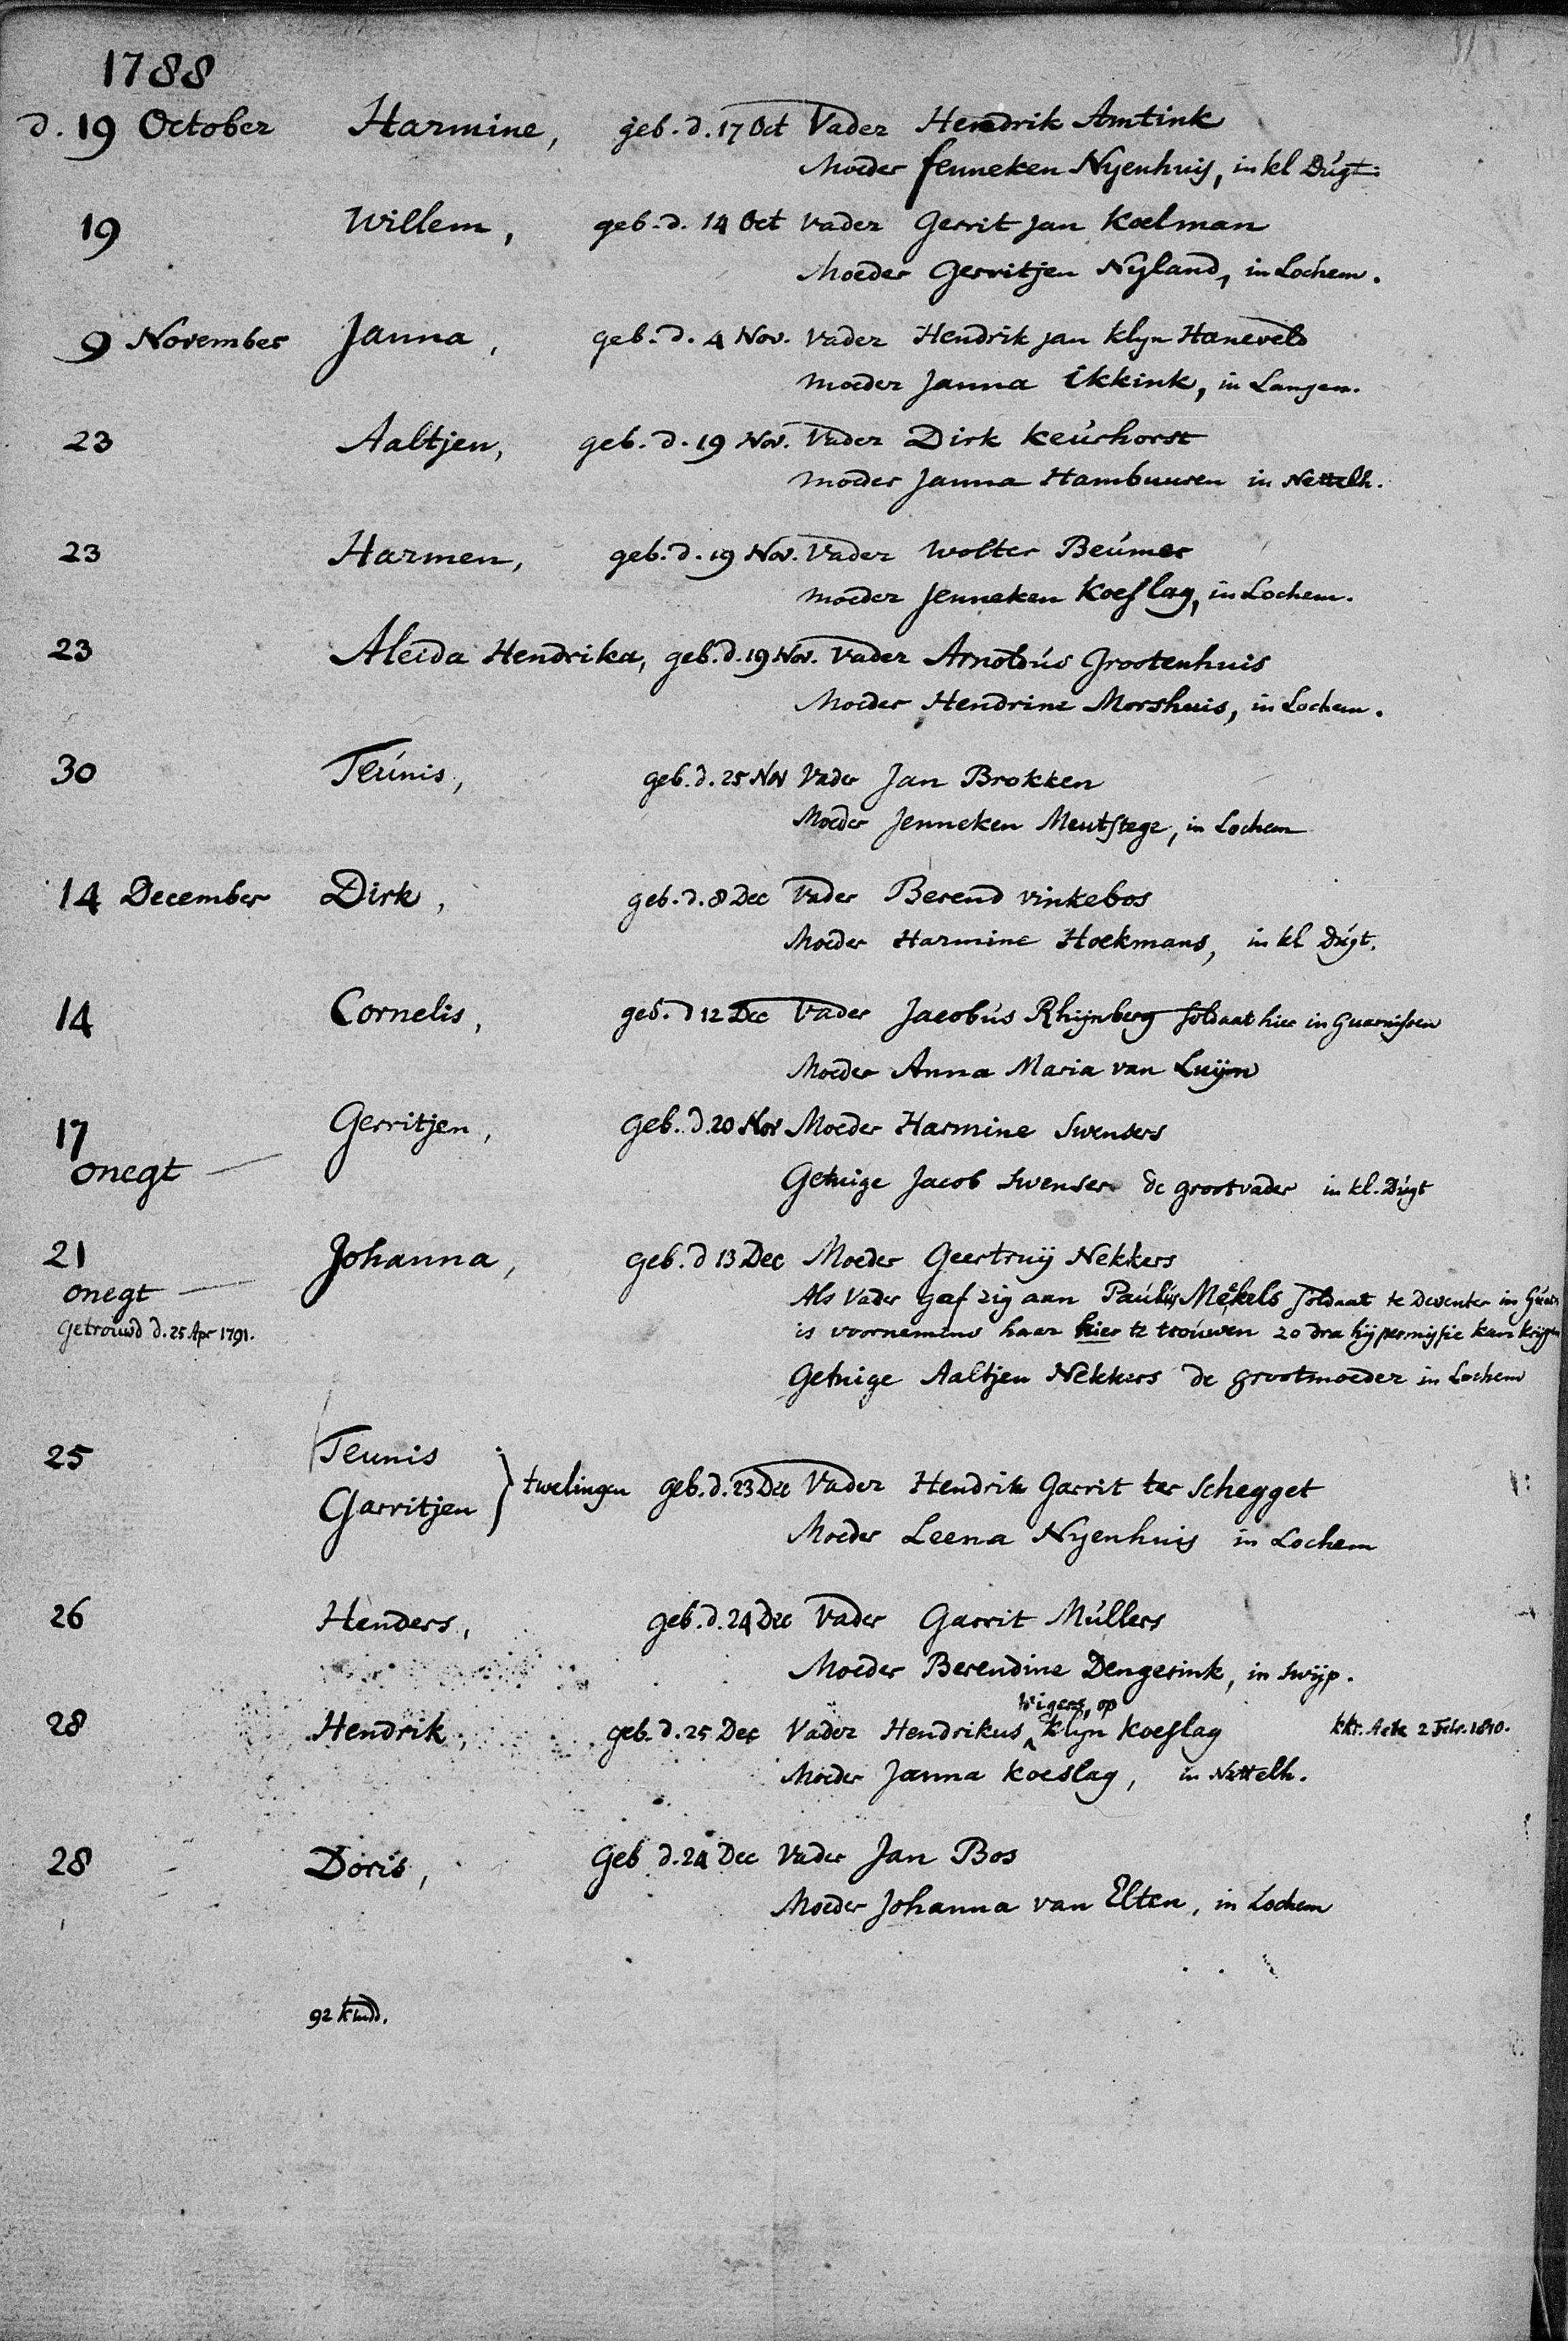 1788
d. 19 October Harmine, geb. d. 17 Oct Vader Hendrik Amtink
Moeder fenneken Nyenhuis, in kl Dúgt.
19 Willem, geb. d. 14 Oct Vader Gerrit Jan Koelman
Moeder Gerritjen Nyland, in Lochem.
9 November Janna, geb. d. 4 Nov. Vader Hendrik Jan Klyn Haneveld
Moeder Janna Ikkink, in Langen.
23 Aaltjen, geb. d. 19 Nov. Vader Dirk Keúrhorst
Moeder Janna Hambuuren in Nettelh.
23 Harmen, geb. d. 19 Nov. Vader Wolter Beúmer
Moeder Jenneken Koeslag, in Lochem.
23 Aleida Hendrika, geb. d. 19 Nov. Vader Arnoldús Grootenhuis
Moeder Hendrine Morshuis, in Lochem.
30 Teúnis, geb. d. 25 Nov Vader Jan Brokken
Moeder Jenneken Meutstege, in Lochem
14 December Dirk, geb. d. 8 Dec Vader Berend Vinkebos
Moeder Harmine Hoekmans, in kl Dúgt.
14 Cornelis, geb. d 12 Dec Vader Jacobús Rhijnberg Soldaat hier in Guarnisoen
Moeder Anna Maria van Luijn
17 Gerritjen, geb. d. 20 Nov Moeder Harmine Swensers
onegt Getuige Jacob Swenser de grootvader in kl. Dúgt
21 Johanna, geb. d 13 Dec Moeder Geertruij Nekkers
onegt Als Vader gaf zig aan Paúlús Mekels Soldaat te Deventer in Guarn
getrouwd d. 25 Apr 1791. is voornemens haar hier te troúwen zo dra hij permissie kan krijgen
Getuige Aaltjen Nekkers de grootmoeder in Lochem
25 Teunis
Garritjen } twelingen geb. d. 23 Dec Vader Hendrik Garrit ter Schegget
Moeder Leena Nyenhuis in Lochem
26 Henders, geb. d. 24 Dec Vader Garrit Múllers
Moeder Berendine Dengerink, in Swijp.
Wigers, op
28 Hendrik, geb. d. 25 Dec Vader Hendrikus ^ Klijn Koeslag kkr. Acte 2 Febr. 1810.
Moeder Janna Koeslag, in Nettelh.
28 Doris, Geb d. 24 Dec Vader Jan Bos
Moeder Johanna van Elten, in Lochem
92 kindd.